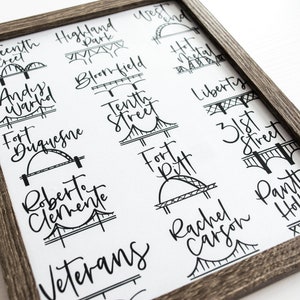 Highland
Park
West
Street
Hot
Metal
Bloomfield
Andy
Warhol
Liberty
Tenth
Street
31st
Street
Fort
Duquesne
Fort
Pitt
Roberto
Clemente
Rachel
Carson
Veterans